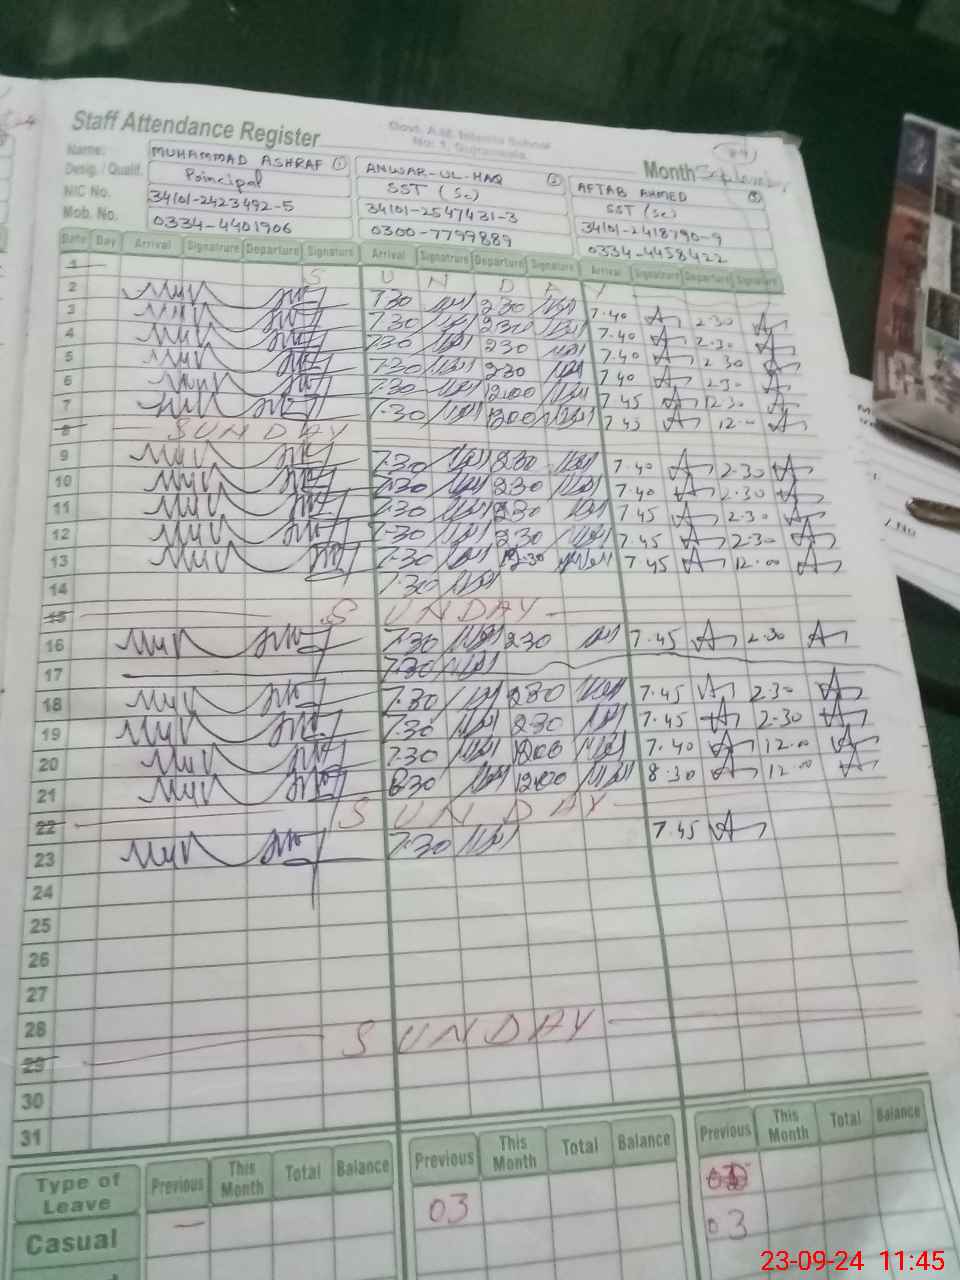 Staff Attendance Register
Govt. A.M. Islamia School
No. 1, Gujranwala
Month September
Name: MUHAMMAD ASHRAF ① ANWAR-UL-HAQ ② AFTAB AHMED ③
Desig. / Qualif. Principal SST (Sc) SST (Sc)
NIC No. 34101-2423492-5 34101-2547431-3 34101-2418790-9
Mob. No. 0334-4401906 0300-7799889 0334-4458422
Date Day Arrival Signature Departure Signature Arrival Signature Departure Signature Arrival Signature Departure Signature
1 S U N D A Y
2 730 230 7.40 2.30
3 730 230 7.40 2.30
4 730 230 7.40 2.30
5 7.30 230 7.40 2.30
6 7.30 1200 7.45 12.30
7 7.30 1200 7.45 12.00
8 SUNDAY
9 7.30 230 7.40 2.30
10 7.30 230 7.40 2.30
11 7.30 230 7.45 2.30
12 7.30 230 7.45 2.30
13 7.30 12.30 7.45 12.00
14 7.30
15 S UNDAY
16 7.30 230 7.45 2.30
17 7.30
18 7.30 230 7.45 2.30
19 7.30 230 7.45 2.30
20 7.30 1200 7.40 12.00
21 8.30 1200 8.30 12.00
22 S U N D A Y
23 7.30 7.45
24
25
26
27
28
29 S U N D A Y
30
31
Type of Leave Previous This Month Total Balance Previous This Month Total Balance Previous This Month Total Balance
Casual — 03 03
23-09-24 11:45